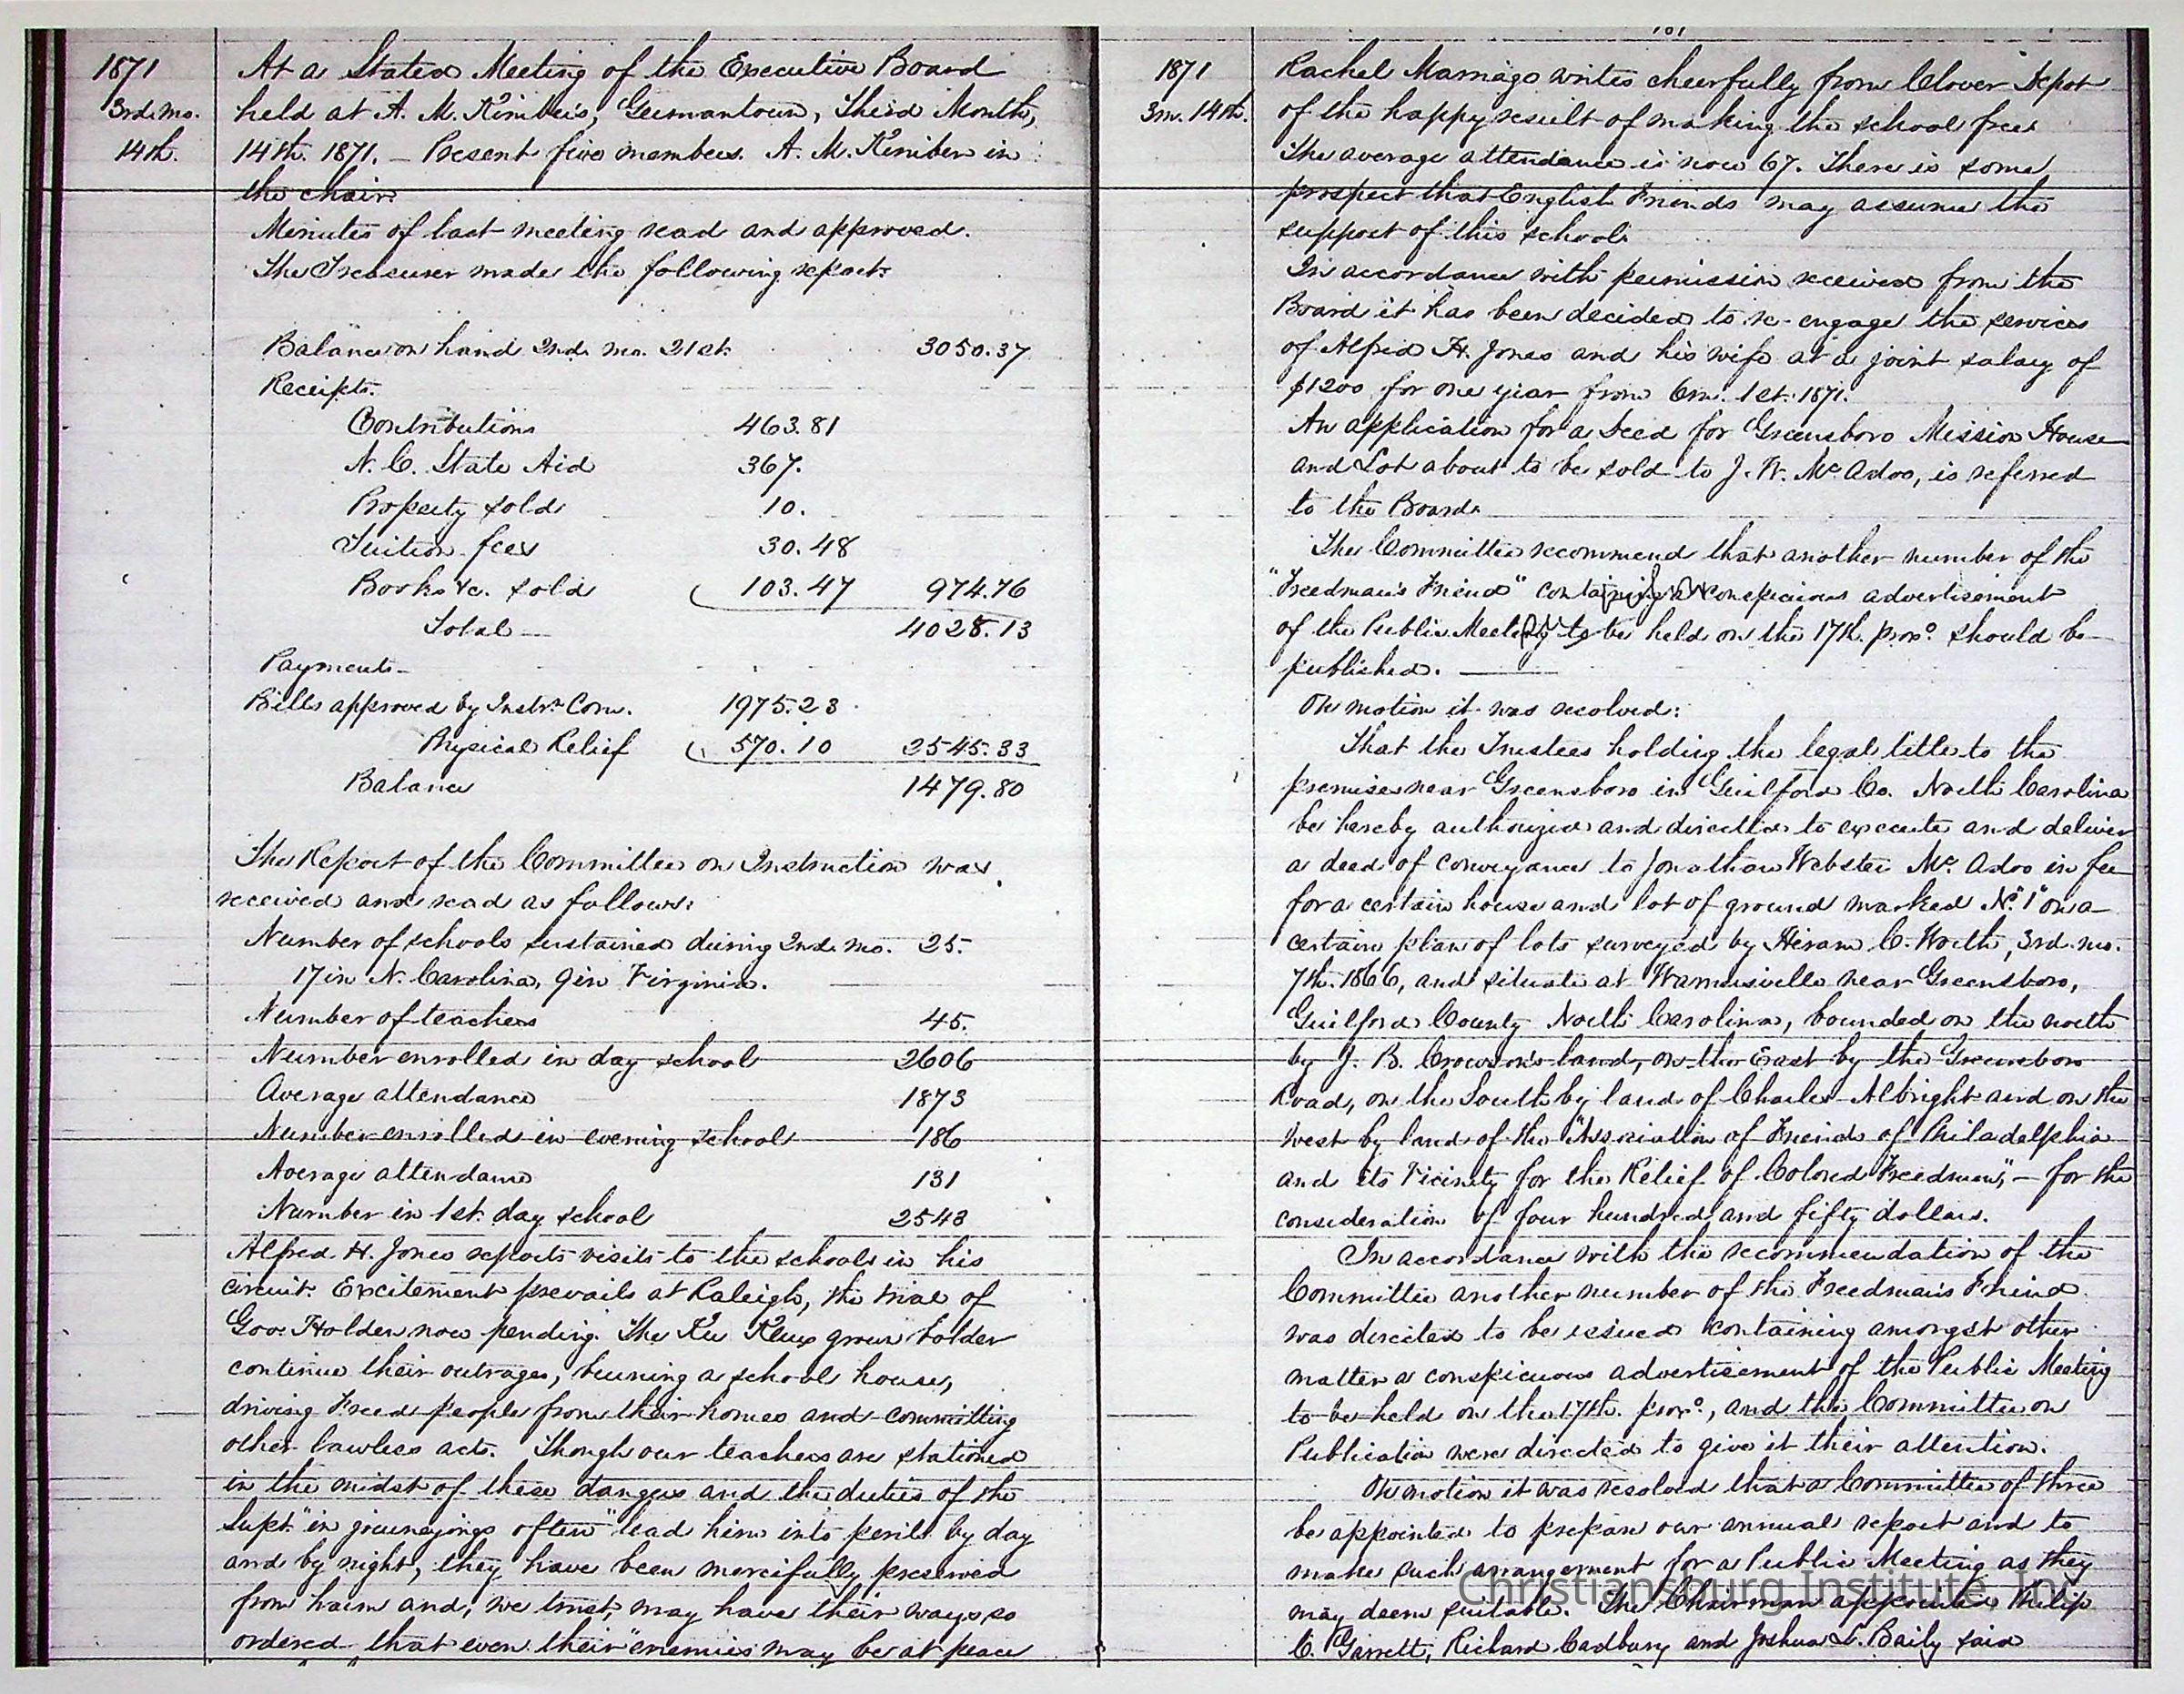 1871
3rd. mo.
14th.
At a Stated Meeting of the Executive Board
held at A. M. Kimber's, Germantown, Third Month,
14th. 1871. – Present five members. A. M. Kimber in
the chair.
Minutes of last meeting read and approved.
The Treasurer made the following report:
Balance on hand 2nd. mo. 21st. 3050.37
Receipts.
Contributions 463.81
N. C. State Aid 367.
Property sold 10.
Tuition fees 30.48
Books &c. sold 103.47 974.76
Total — 4025.13
Payments –
Bills approved by Instrn. Com. 1975.23
Physical Relief 570.10 2545.33
Balance 1479.80
The Report of the Committee on Instruction was
received and read as follows:
Number of schools sustained during 2nd. mo. 25.
17 in N. Carolina, 9 in Virginia.
Number of teachers 45.
Number enrolled in day school 2606
Average attendance 1873
Number enrolled in evening school 186
Average attendance 131
Number in 1st. day school 2543
Alfred H. Jones reports visits to the schools in his
circuit. Excitement prevails at Raleigh, the trial of
Gov. Holden now pending. The Ku Klux grown bolder
continue their outrages, burning a school house,
driving Freed people from their homes and committing
other lawless acts. Though our teachers are stationed
in the midst of these dangers and the duties of the
Supt. "in journeyings often" lead him into perils by day
and by night, they have been mercifully preserved
from harm and, we trust, may have their ways so
ordered that even their "enemies may be at peace
101
1871
3m. 14th.
Rachel Marriage writes cheerfully from Clover Depot
of the happy result of making the school free.
The average attendance is now 67. There is some
prospect that English Friends may assume the
support of this school.
In accordance with permission received from the
Board it has been decided to re-engage the services
of Alfred H. Jones and his wife at a joint salary of
$1200 for one year from 6m. 1st. 1871.
An application for a Deed for Greensboro Mission House
and Lot about to be sold to J. W. McAdoo, is referred
to the Board.
The Committee recommend that another number of the
"Freedman's Friend" containing a conspicuous advertisement
of the Public Meeting to be held on the 17th. proxo. should be
published. —
On motion it was resolved:
That the Trustees holding the legal title to the
premises near Greensboro in Guilford Co. North Carolina
be hereby authorized and directed to execute and deliver
a deed of conveyance to Jonathan Webster McAdoo in fee
for a certain house and lot of ground marked No. "1" on a
certain plan of lots surveyed by Hiram C. Worth, 3rd. mo.
7th. 1866, and situate at Warnersville near Greensboro,
Guilford County North Carolina, bounded on the north
by J. B. Crowson's land, on the East by the Greensboro
Road, on the South by land of Charles Albright and on the
west by land of the "Association of Friends of Philadelphia
and its Vicinity for the Relief of Colored Freedmen", – for the
consideration of four hundred and fifty dollars.
In accordance with the recommendation of the
Committee another number of the Freedman's Friend
was directed to be issued containing amongst other
matter a conspicuous advertisement of the Public Meeting
to be held on the 17th. proxo., and the Committee on
Publication were directed to give it their attention.
On motion it was resolved that a Committee of three
be appointed to prepare our annual report and to
make such arrangement for a Public Meeting as they
may deem suitable. The Chairman appointed Philip
C. Garrett, Richard Cadbury and Joshua L. Baily said
Christiansburg Institute, Inc